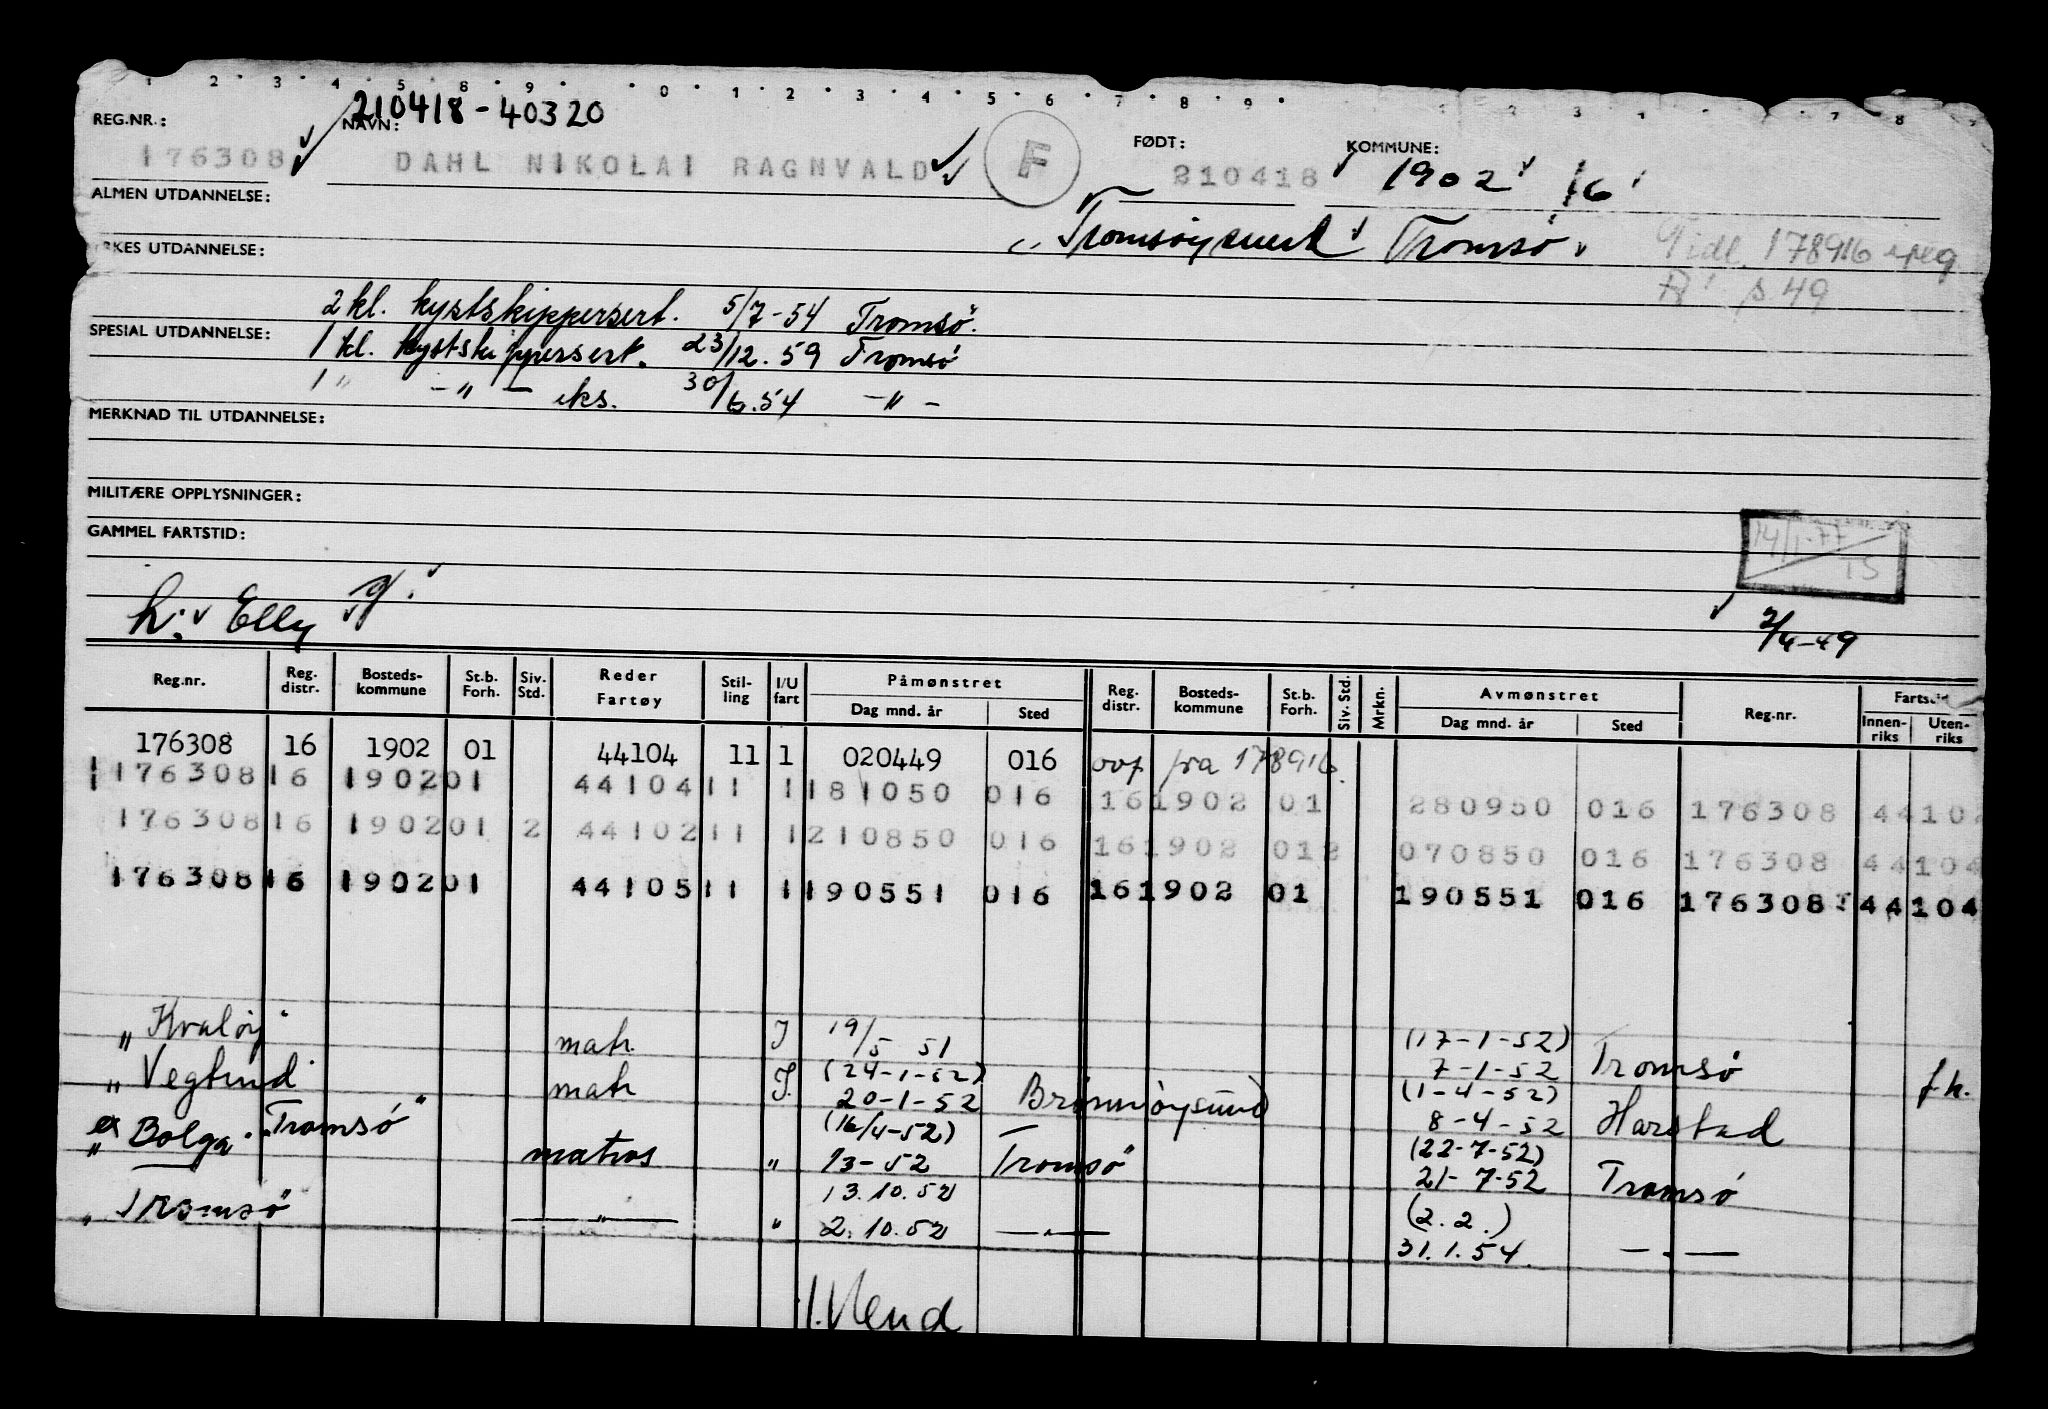 1 2 3 4 5 8 9 0 1 2 3 4 5 6 7 8 9 1 2 3 4 7 8
210418-40320
REG.NR.: NAVN: FØDT: KOMMUNE:
176308 DAHL NIKOLAI RAGNVALD F 210418 1902 16
ALMEN UTDANNELSE:
Tromsø Tidl. 178916 i reg
RKES UTDANNELSE:
s 49
2 kl. kystskippersert. 5/7-54 Tromsø.
SPESIAL UTDANNELSE:
1 kl. kystskippersert. 23/12.59 Tromsø
1 " - " - eks. 30/6.54 - " -
MERKNAD TIL UTDANNELSE:
MILITÆRE OPPLYSNINGER:
GAMMEL FARTSTID:
14/1-77
TS
h: Elly
2/4-49
Reg.nr. Reg. distr. Bosteds-kommune St.b. Forh. Siv. Std. Reder Fartøy Stil-ling I/U fart Påmønstret Dag mnd. år Sted Reg. distr. Bosteds-kommune St.b. Forh. Siv. Std. Mrkn. Avmønstret Dag mnd. år Sted Reg.nr. Innen-riks Uten-riks
176308 16 1902 01 44104 11 1 020449 016 ovf fra 178916.
176308 16 1902 01 44104 11 1 181050 016 16 1902 01 280950 016 176308 44102
176308 16 1902 01 2 44102 11 1 210850 016 16 1902 01 2 070850 016 176308 44104
176308 16 1902 01 44105 11 1 190551 016 16 1902 01 190551 016 176308 44104
"Kvaløy" matr. I 19/5 51 (17-1-52) 7-1-52 Tromsø
"Vegtind matr I. (24-1-52) 20-1-52 Brønnøysund (1-4-52) 8-4-52 Harstad f.h.
ex Bolga "Tromsø" matros " (16/4-52) 13-52 Tromsø" (22-7-52) 21-7-52 Tromsø
"Tromsø" — " — " 13.10.52 2.10.52 — " — (2.2.) 31.1.54. — " —